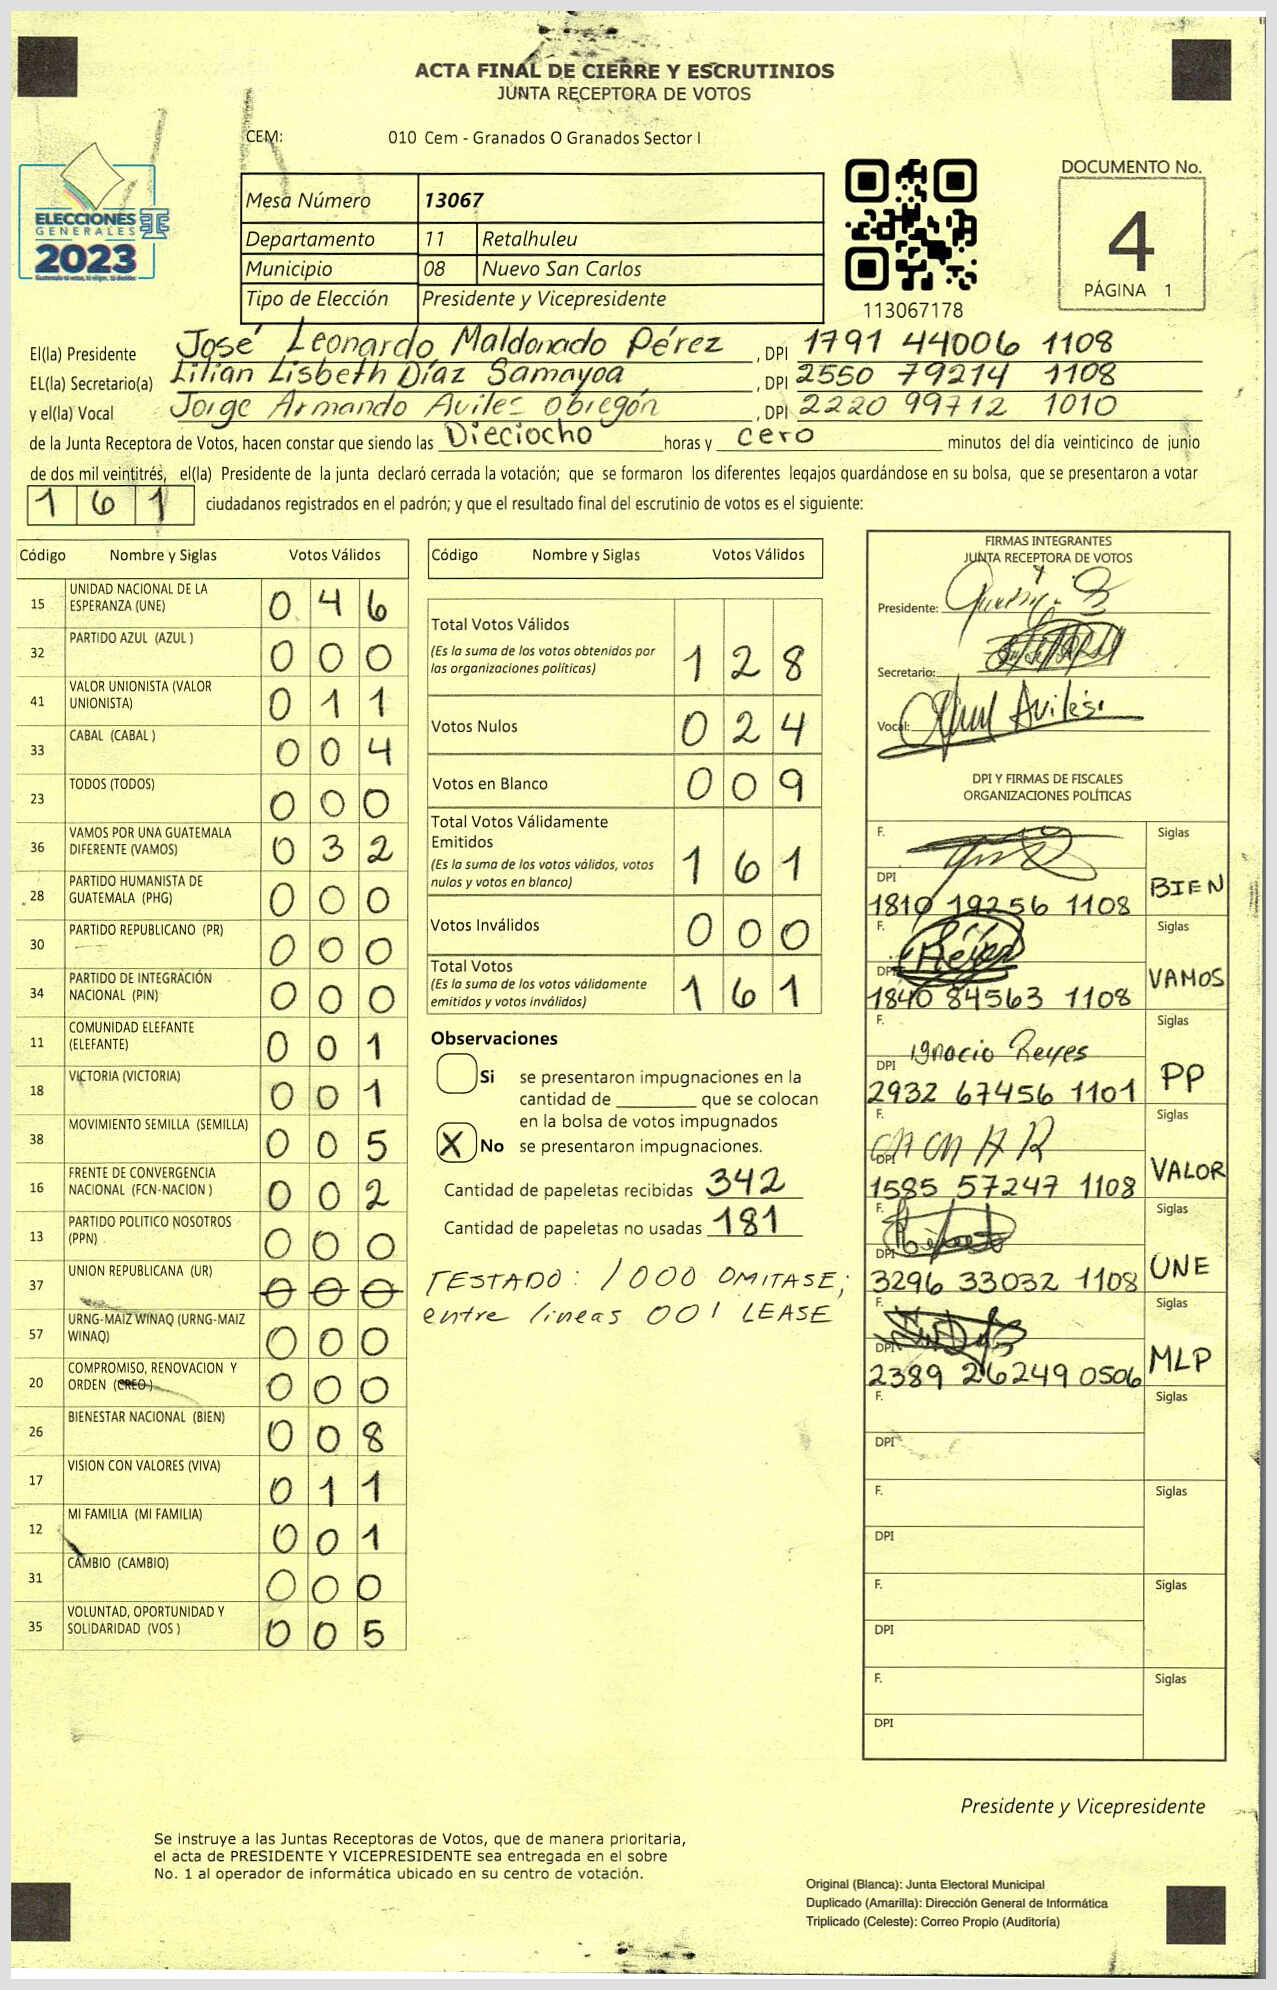 ACTA FINAL DE CIERRE Y ESCRUTINIOS
JUNTA RECEPTORA DE VOTOS
CEM: 010 Cem - Granados O Granados Sector I
ELECCIONES
GENERALES
2023
Mesa Número 13067
Departamento 11 Retalhuleu
Municipio 08 Nuevo San Carlos
Tipo de Elección Presidente y Vicepresidente
113067178
DOCUMENTO No.
4
PÁGINA 1
El(la) Presidente José Leonardo Maldonado Pérez , DPI 1791 44006 1108
EL(la) Secretario(a) Lilian Lisbeth Díaz Samayoa , DPI 2550 79214 1108
y el(la) Vocal Jorge Armando Aviles Obregón , DPI 2220 99712 1010
de la Junta Receptora de Votos, hacen constar que siendo las Dieciocho horas y cero minutos del día veinticinco de junio
de dos mil veintitrés, el(la) Presidente de la junta declaró cerrada la votación; que se formaron los diferentes legajos guardándose en su bolsa, que se presentaron a votar
161 ciudadanos registrados en el padrón; y que el resultado final del escrutinio de votos es el siguiente:
Código Nombre y Siglas Votos Válidos
15 UNIDAD NACIONAL DE LA ESPERANZA (UNE) 0 4 6
32 PARTIDO AZUL (AZUL ) 0 0 0
41 VALOR UNIONISTA (VALOR UNIONISTA) 0 1 1
33 CABAL (CABAL ) 0 0 4
23 TODOS (TODOS) 0 0 0
36 VAMOS POR UNA GUATEMALA DIFERENTE (VAMOS) 0 3 2
28 PARTIDO HUMANISTA DE GUATEMALA (PHG) 0 0 0
30 PARTIDO REPUBLICANO (PR) 0 0 0
34 PARTIDO DE INTEGRACIÓN NACIONAL (PIN) 0 0 0
11 COMUNIDAD ELEFANTE (ELEFANTE) 0 0 1
18 VICTORIA (VICTORIA) 0 0 1
38 MOVIMIENTO SEMILLA (SEMILLA) 0 0 5
16 FRENTE DE CONVERGENCIA NACIONAL (FCN-NACION ) 0 0 2
13 PARTIDO POLITICO NOSOTROS (PPN) 0 0 0
37 UNION REPUBLICANA (UR) 0 0 0
57 URNG-MAIZ WINAQ (URNG-MAIZ WINAQ) 0 0 0
20 COMPROMISO, RENOVACION Y ORDEN (CREO) 0 0 0
26 BIENESTAR NACIONAL (BIEN) 0 0 8
17 VISION CON VALORES (VIVA) 0 1 1
12 MI FAMILIA (MI FAMILIA) 0 0 1
31 CAMBIO (CAMBIO) 0 0 0
35 VOLUNTAD, OPORTUNIDAD Y SOLIDARIDAD (VOS ) 0 0 5
Código Nombre y Siglas Votos Válidos
Total Votos Válidos
(Es la suma de los votos obtenidos por
las organizaciones políticas) 1 2 8
Votos Nulos 0 2 4
Votos en Blanco 0 0 9
Total Votos Válidamente
Emitidos
(Es la suma de los votos válidos, votos
nulos y votos en blanco) 1 6 1
Votos Inválidos 0 0 0
Total Votos
(Es la suma de los votos válidamente
emitidos y votos inválidos) 1 6 1
Observaciones
Si se presentaron impugnaciones en la
cantidad de ________ que se colocan
en la bolsa de votos impugnados
X No se presentaron impugnaciones.
Cantidad de papeletas recibidas 342
Cantidad de papeletas no usadas 181
TESTADO: 1000 OMITASE;
entre líneas 001 LEASE
FIRMAS INTEGRANTES
JUNTA RECEPTORA DE VOTOS
Presidente:
Secretario:
Vocal: Avilés
DPI Y FIRMAS DE FISCALES
ORGANIZACIONES POLÍTICAS
F. Siglas
DPI 1810 19256 1108 BIEN
F. Reyes Siglas
DPI 1840 84563 1108 VAMOS
F. Ignacio Reyes Siglas
DPI 2932 67456 1101 PP
F. Siglas
DPI 1585 57247 1108 VALOR
F. Siglas
DPI 3296 33032 1108 UNE
F. Siglas
DPI 2389 26249 0506 MLP
F. Siglas
DPI
F. Siglas
DPI
F. Siglas
DPI
F. Siglas
DPI
Presidente y Vicepresidente
Se instruye a las Juntas Receptoras de Votos, que de manera prioritaria,
el acta de PRESIDENTE Y VICEPRESIDENTE sea entregada en el sobre
No. 1 al operador de informática ubicado en su centro de votación.
Original (Blanca): Junta Electoral Municipal
Duplicado (Amarilla): Dirección General de Informática
Triplicado (Celeste): Correo Propio (Auditoría)